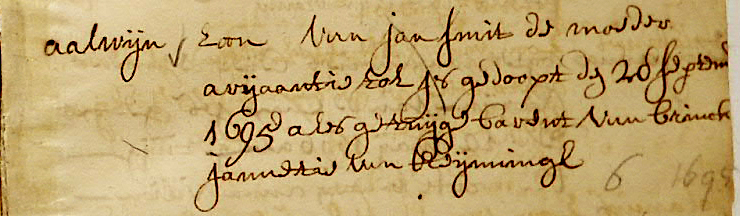 aalwijn / zoon van jan smit de moeder
arijaantie zol is gedoopt den 28 septem
1695 ales getuijge barent van brinck
jannetie van 
6 1695